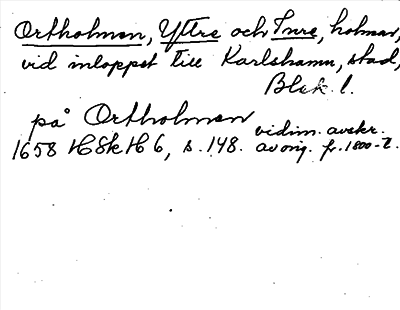 Ortholmen, Yttre och Inre, holmar,
vid inloppet till Karlshamn, stad,
Blek. l.
på Ortholmen
1658 HSkH 6, s. 148. vidim. avskr.
av orig. fr. 1800-t.